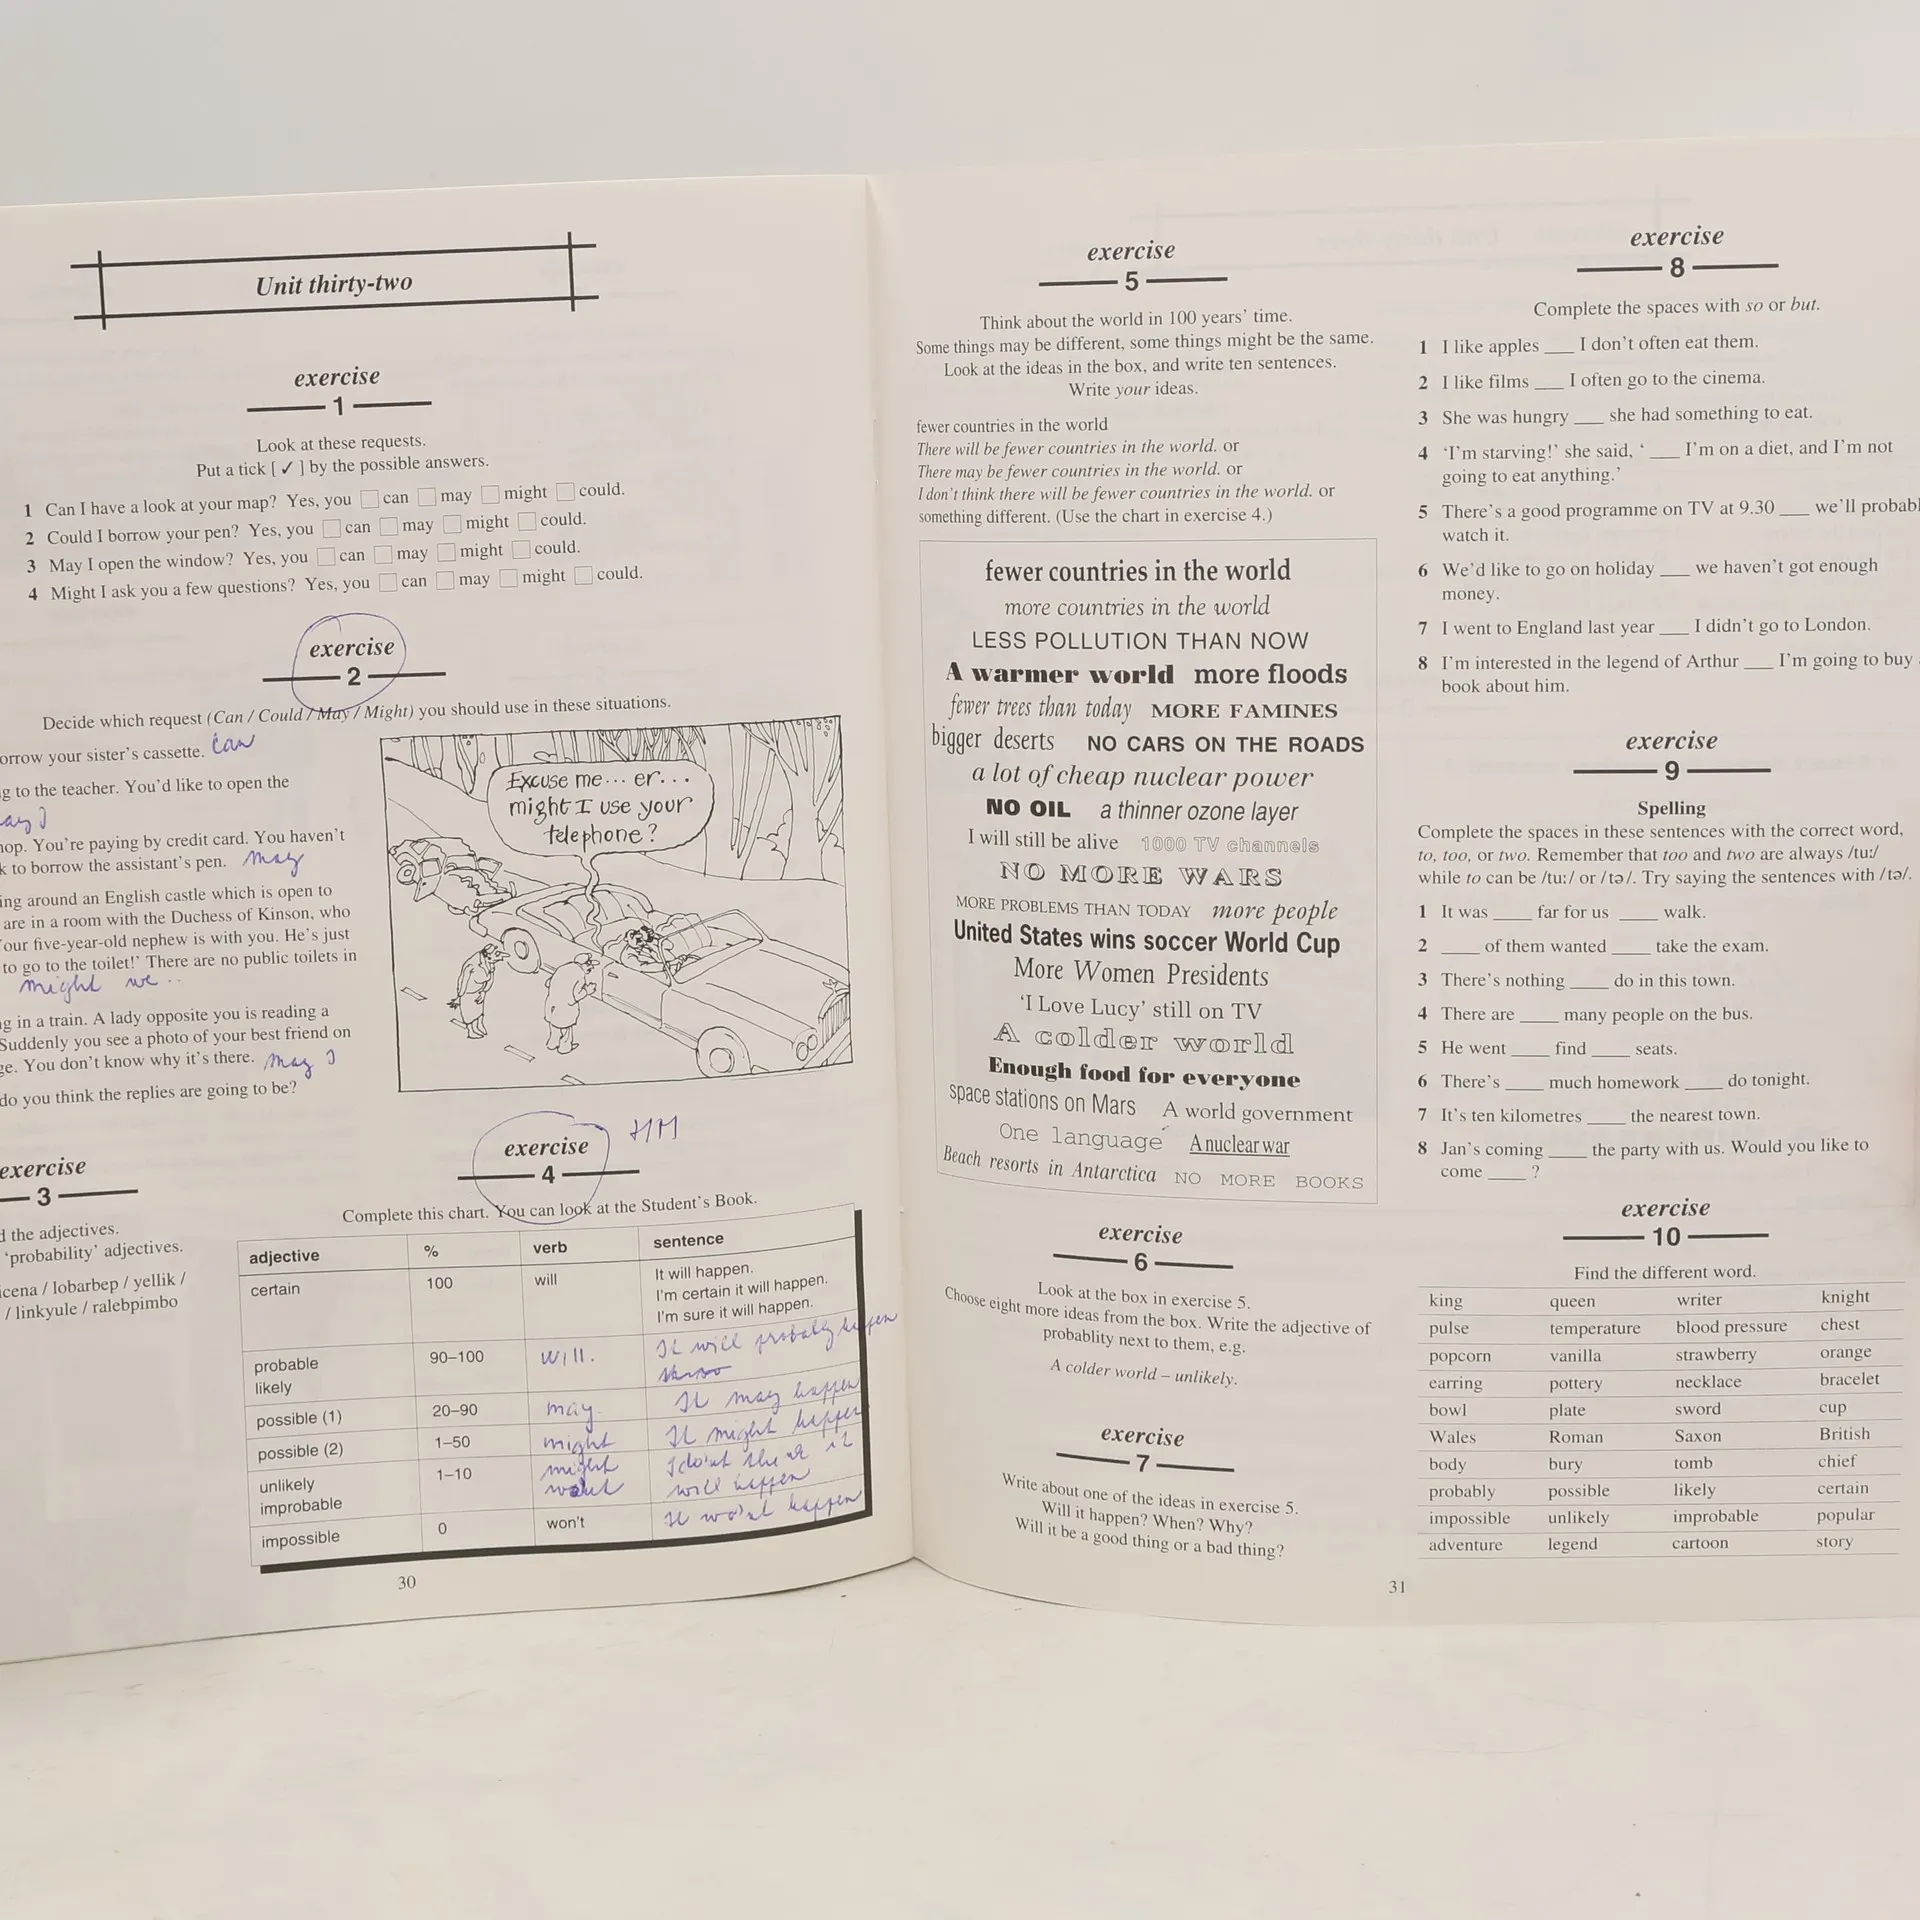 Unit thirty-two
exercise
1
Look at these requests.
Put a tick [ ✓ ] by the possible answers.
1 Can I have a look at your map? Yes, you □ can □ may □ might □ could.
2 Could I borrow your pen? Yes, you □ can □ may □ might □ could.
3 May I open the window? Yes, you □ can □ may □ might □ could.
4 Might I ask you a few questions? Yes, you □ can □ may □ might □ could.
exercise
2
Decide which request (Can / Could / May / Might) you should use in these situations.
orrow your sister's cassette. Can
g to the teacher. You'd like to open the
ay I
hop. You're paying by credit card. You haven't
k to borrow the assistant's pen. may
ing around an English castle which is open to
are in a room with the Duchess of Kinson, who
our five-year-old nephew is with you. He's just
to go to the toilet!' There are no public toilets in
might we ..
g in a train. A lady opposite you is reading a
Suddenly you see a photo of your best friend on
ge. You don't know why it's there. may I
do you think the replies are going to be?
Excuse me... er...
might I use your
telephone?
exercise
3
d the adjectives.
'probability' adjectives.
icena / lobarbep / yellik /
/ linkyule / ralebpimbo
exercise
4
Complete this chart. You can look at the Student's Book.
adjective % verb sentence
certain 100 will It will happen.
I'm certain it will happen.
I'm sure it will happen.
probable 90–100 will. It will probably happen
likely
possible (1) 20–90 may. It may happen
possible (2) 1–50 might It might happen
unlikely 1–10 might
improbable will happen
impossible 0 won't
30
exercise
5
Think about the world in 100 years' time.
Some things may be different, some things might be the same.
Look at the ideas in the box, and write ten sentences.
Write your ideas.
fewer countries in the world
There will be fewer countries in the world. or
There may be fewer countries in the world. or
I don't think there will be fewer countries in the world. or
something different. (Use the chart in exercise 4.)
fewer countries in the world
more countries in the world
LESS POLLUTION THAN NOW
A warmer world more floods
fewer trees than today MORE FAMINES
bigger deserts NO CARS ON THE ROADS
a lot of cheap nuclear power
NO OIL a thinner ozone layer
I will still be alive 1000 TV channels
NO MORE WARS
MORE PROBLEMS THAN TODAY more people
United States wins soccer World Cup
More Women Presidents
'I Love Lucy' still on TV
A colder world
Enough food for everyone
space stations on Mars A world government
One language A nuclear war
Beach resorts in Antarctica NO MORE BOOKS
exercise
6
Look at the box in exercise 5.
Choose eight more ideas from the box. Write the adjective of
probablity next to them, e.g.
A colder world – unlikely.
exercise
7
Write about one of the ideas in exercise 5.
Will it happen? When? Why?
Will it be a good thing or a bad thing?
exercise
8
Complete the spaces with so or but.
1 I like apples ___ I don't often eat them.
2 I like films ___ I often go to the cinema.
3 She was hungry ___ she had something to eat.
4 'I'm starving!' she said, ' ___ I'm on a diet, and I'm not
going to eat anything.'
5 There's a good programme on TV at 9.30 ___ we'll probabl
watch it.
6 We'd like to go on holiday ___ we haven't got enough
money.
7 I went to England last year ___ I didn't go to London.
8 I'm interested in the legend of Arthur ___ I'm going to buy
book about him.
exercise
9
Spelling
Complete the spaces in these sentences with the correct word,
to, too, or two. Remember that too and two are always /tu:/
while to can be /tu:/ or /tə/. Try saying the sentences with /tə/.
1 It was ____ far for us ____ walk.
2 ____ of them wanted ____ take the exam.
3 There's nothing ____ do in this town.
4 There are ____ many people on the bus.
5 He went ____ find ____ seats.
6 There's ____ much homework ____ do tonight.
7 It's ten kilometres ____ the nearest town.
8 Jan's coming ____ the party with us. Would you like to
come ____ ?
exercise
10
Find the different word.
king queen writer knight
pulse temperature blood pressure chest
popcorn vanilla strawberry orange
earring pottery necklace bracelet
bowl plate sword cup
Wales Roman Saxon British
body bury tomb chief
probably possible likely certain
impossible unlikely improbable popular
adventure legend cartoon story
31